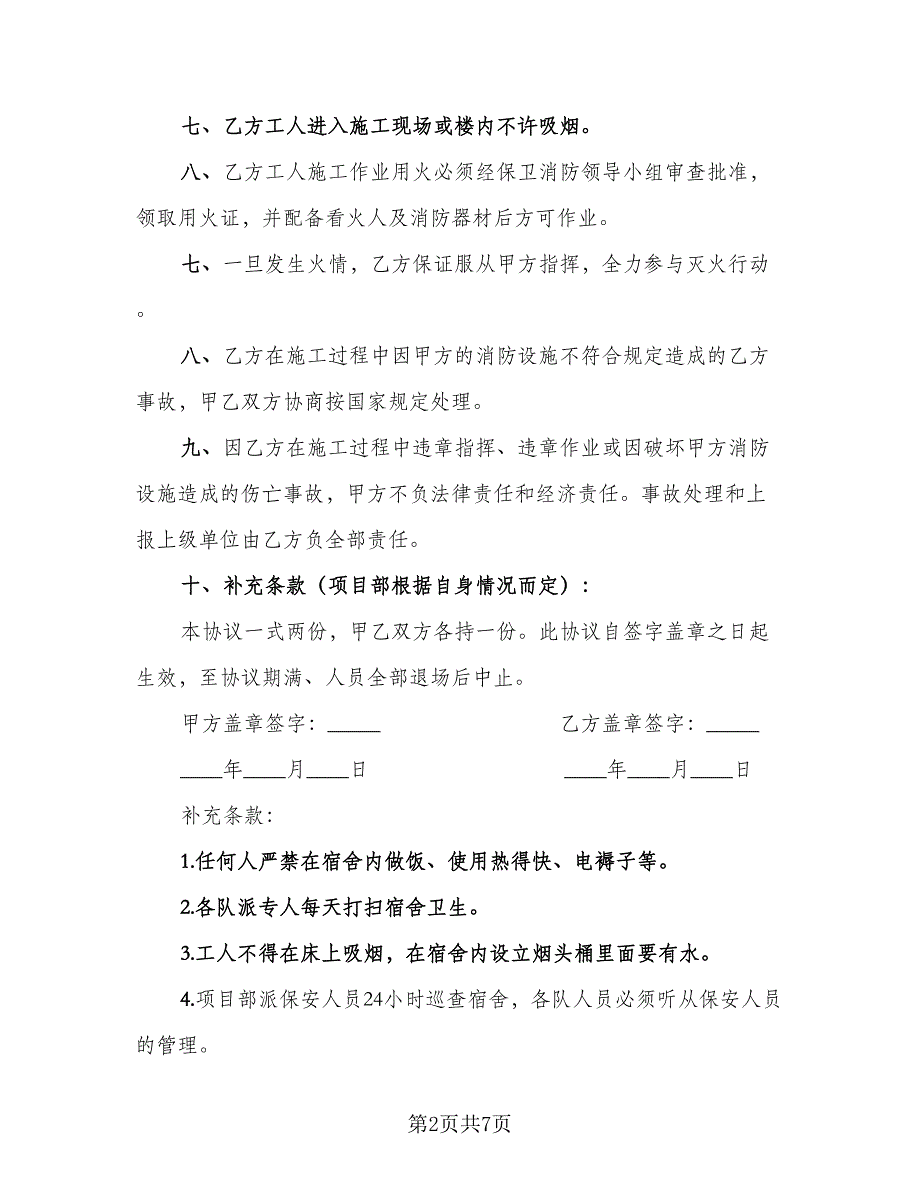 七、乙方工人进入施工现场或楼内不许吸烟。
八、乙方工人施工作业用火必须经保卫消防领导小组审查批准，
领取用火证，并配备看火人及消防器材后方可作业。
七、一旦发生火情，乙方保证服从甲方指挥，全力参与灭火行动
。
八、乙方在施工过程中因甲方的消防设施不符合规定造成的乙方
事故，甲乙双方协商按国家规定处理。
九、因乙方在施工过程中违章指挥、违章作业或因破坏甲方消防
设施造成的伤亡事故，甲方不负法律责任和经济责任。事故处理和上
报上级单位由乙方负全部责任。
十、补充条款（项目部根据自身情况而定）：
本协议一式两份，甲乙双方各持一份。此协议自签字盖章之日起
生效，至协议期满、人员全部退场后中止。
甲方盖章签字：_____ 乙方盖章签字：_____
____年____月____日 ____年____月____日
补充条款：
1.任何人严禁在宿舍内做饭、使用热得快、电褥子等。
2.各队派专人每天打扫宿舍卫生。
3.工人不得在床上吸烟，在宿舍内设立烟头桶里面要有水。
4.项目部派保安人员24小时巡查宿舍，各队人员必须听从保安人员
的管理。
第2页共7页